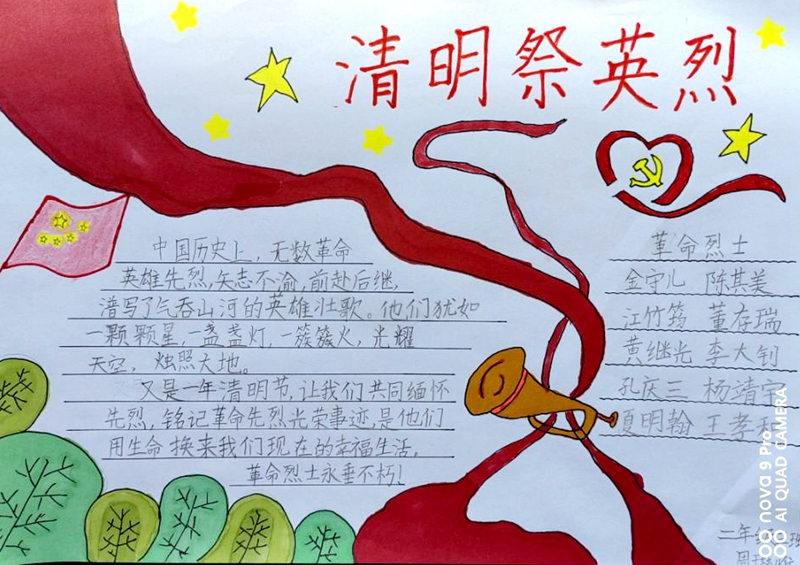 清明祭英烈
中国历史上，无数革命
英雄先烈，矢志不渝，前赴后继，
谱写了气吞山河的英雄壮歌。他们犹如
一颗颗星，一盏盏灯，一簇簇火，光耀
天空，烛照大地。
又是一年清明节，让我们共同缅怀
先烈，铭记革命先烈光荣事迹，是他们
用生命换来我们现在的幸福生活，
革命烈士永垂不朽！
革命烈士
金守儿 陈其美
江竹筠 董存瑞
黄继光 李大钊
孔庆三 杨靖宇
夏明翰 王孝
二年级
nova 9 Pro
AI QUAD CAMERA